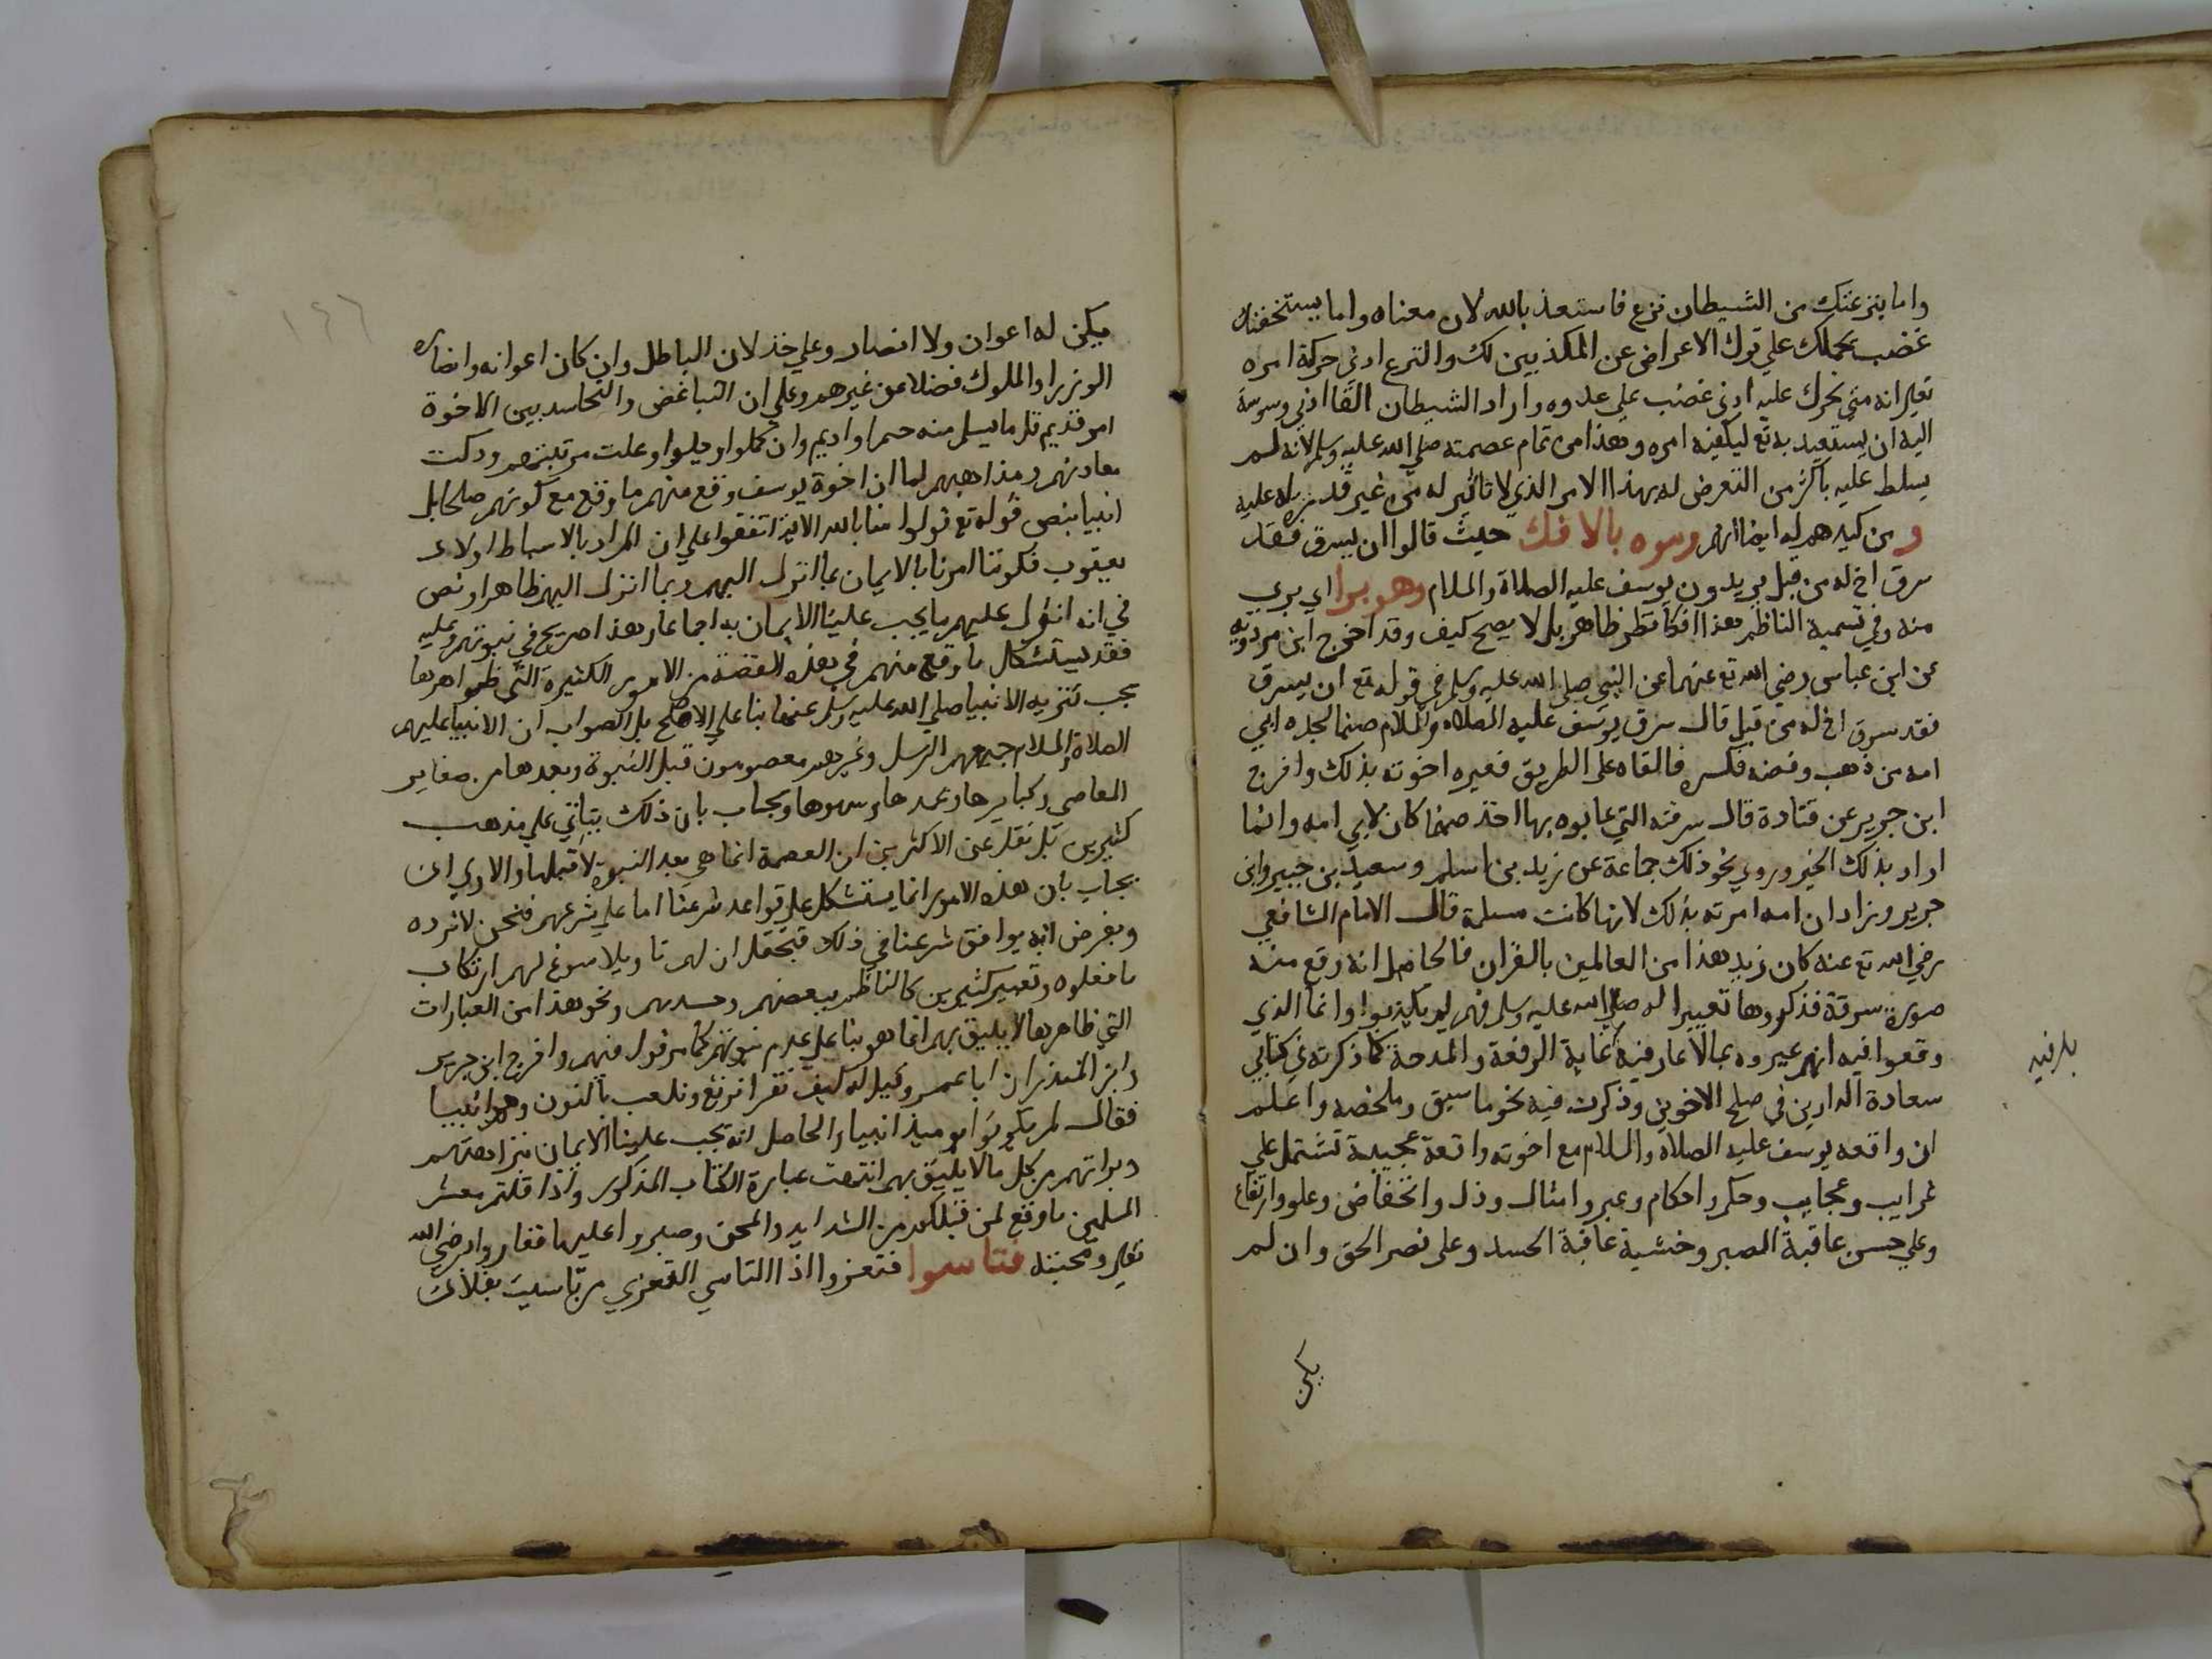 واما ينزغنك من الشيطان نزغ فاستعذ بالله لان معناه واما يستخفنك
غضب يحملك علي ترك الاعراض عن المكذبين لك والنزغ ادني حركة امره
تعالى انه متي تحرك عليه ادني غضب علي عدوه واراد الشيطان القا ادني وسوسة
اليه ان يستعيذ به تع ليكفيه امره وهذا من تمام عصمته صلي الله عليه وسلم لانه لم
يسلط عليه باكثر من التعرض له بهذا الامر الذي لا تاثير له من غير قدرة له عليه
ومن كيدهم له ايضا انهم رموه بالافك حيث قالوا ان يسرق فقد
سرق اخ له من قبل يريدون يوسف عليه الصلاة والسلام وهو برا اي بري
منه وفي تسمية الناظم هذا افكا نظر ظاهر بل لا يصح كيف وقد اخرج ابن مردويه
عن ابن عباس رضي الله تع عنهما عن النبي صلي الله عليه وسلم في قوله تع ان يسرق
فقد سرق اخ له من قبل قال سرق يوسف عليه الصلاة والسلام صنما لجده ابي
امه من ذهب وفضة فكسره فالقاه على الطريق فعيره اخوته بذلك واخرج
ابن جرير عن قتادة قال سرقته التي عابوه بها اخذ صنما كان لابي امه وانما
اراد بذلك الخير وروي نحو ذلك جماعة عن زيد بن اسلم وسعيد بن جبير وابن
جرير وزاد ان امه امرته بذلك لانها كانت مسلمة قال الامام الشافعي
رضي الله تع عنه كان زيد هذا من العالمين بالقران فالحاصل انه وقع منه
صورة سرقة فذكروها تعييرا له صلي الله عليه وسلم فهم لم يكذبوا وانما الذي
وقعوا فيه انهم عيروه بما لا عار فيه غاية الرفعة والمدحة كما ذكرته في كتابي
بل فيه
سعادة الدارين في صلح الاخوين وذكرت فيه نحو ما سبق وملخصه واعلم
ان واقعه يوسف عليه الصلاة والسلام مع اخوته واقعة عجيبة تشتمل علي
غرايب وعجايب وحكم واحكام وعبر وامثال وذل وانخفاض وعلو وارتفاع
وعلي حسن عاقبة الصبر وخشية عاقبة الحسد وعلى نصر الحق وان لم
يكن
١٤٦
يكن له اعوان ولا انصار وعلي خذلان الباطل وان كان اعوانه وانصاره
الوزرا والملوك فضلا عن غيرهم وعلي ان التباغض والتحاسد بين الاخوة
امر قديم قل ما يسلم منه حمرا واديم وان كملوا وجلوا وعلت مرتبتهم وزكت
معادنهم ومذاهبهم لما ان اخوة يوسف وقع منهم ما وقع مع كونهم صلحا بل
انبيا بنص قوله تع قولوا امنا بالله الاية اتفقوا علي ان المراد بالاسباط اولاد
يعقوب فكوننا امرنا بالايمان بما انزل اليهم وبما انزل اليهم ظاهر او نص
في انه انزل عليهم ما يجب علينا الايمان به اجماعا وهذا صريح في نبوتهم وعليه
فقد يستشكل ما وقع منهم في هذه القصة من الامور الكثيرة التي ظواهرها
يجب تنزيه الانبيا صلي الله عليهم وسلم عنها بنا علي الاصح بل الصواب ان الانبيا عليهم
الصلاة والسلام جميعهم الرسل وغيرهم معصومون قبل النبوة وبعدها من صغاير
المعاصي وكبايرها وعمدها وسهوها ويجاب بان ذلك يتاتي علي مذهب
كثيرين بل نقل عن الاكثرين ان العصمة انما هي بعد النبوة لا قبلها والاولي ان
يجاب بان هذه الامور انما يستشكل علي قواعد شرعنا اما علي شرعهم فنحن لا نرده
وبفرض انه يوافق شرعنا في ذلك فيحتمل ان لهم تاويلا سوغ لهم ارتكاب
ما فعلوه وتعبير كثيرين كالناظم ببغضهم وحسدهم ونحو هذا من العبارات
التي ظاهرها لا يليق بهم انما هو بنا علي عدم نبوتهم كما مر قول فيهم واخرج ابن جرير
وابن المنذر ان ابا عمرو قيل له كيف نقرا نرتع ونلعب بالنون وهم انبيا
فقال لم يكونوا يوميذ انبيا والحاصل انه يجب علينا الايمان بنزاهتهم
وبراتهم من كل ما لا يليق بهم انتهت عبارة الكتاب المذكور واذا قلتم معشر
المسلمين ما وقع لمن قبلكم من الشدايد والمحن وصبروا عليها ففازوا برضي الله
تعالى ومحبته فتاسوا فتعزوا اذ التاسي التعزي من تاسيت بفلان